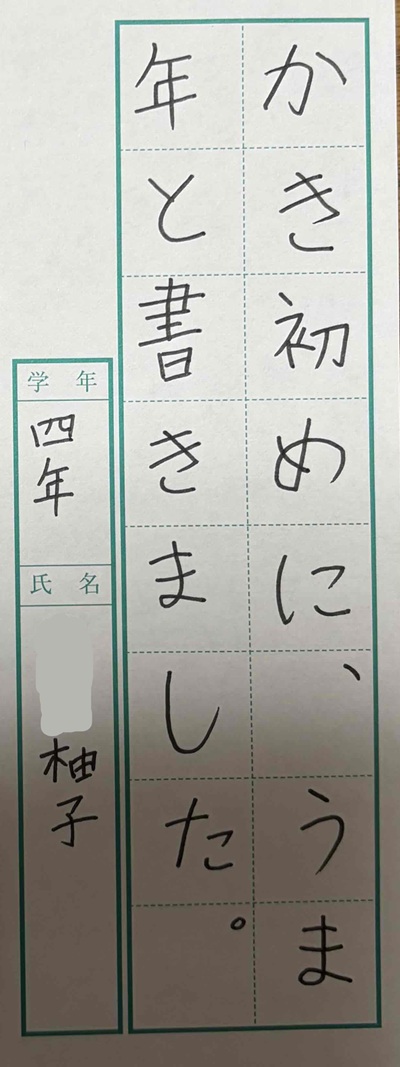 かき初めに、うま
年と書きました。
学年
四年
氏名
柚子